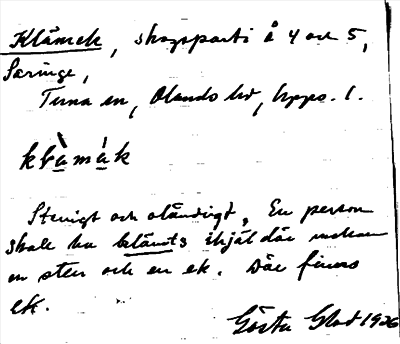 Klämek, skogsparti å 4 och 5,
Saringe,
Tuna sn, Olands hd, Upps. l.
klämäk
Stenigt och oländigt. En person
skall ha klämts ihjäl där mellan
en sten och en ek. Där finns
ek.
Gösta 1926